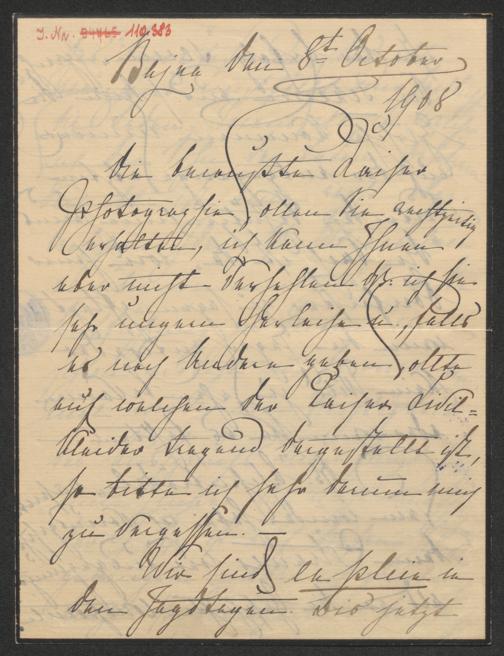 I. Nr. 94465 110.383
Bajna den 8t October
1908
Die bewußte Kaiser
Photographie sollen Sie rechtzeitig
erhalten, ich kann Ihnen
aber nicht verhehlen daß ich sie
sehr ungern verleihe u. falls
es noch andere geben sollte
auf welchen der Kaiser Civil-
kleider tragend dargestellt ist,
so bitte ich sehr darum mich
zu vergessen. —
Wir sind en plein in
den Jagdtagen. Bis jetzt